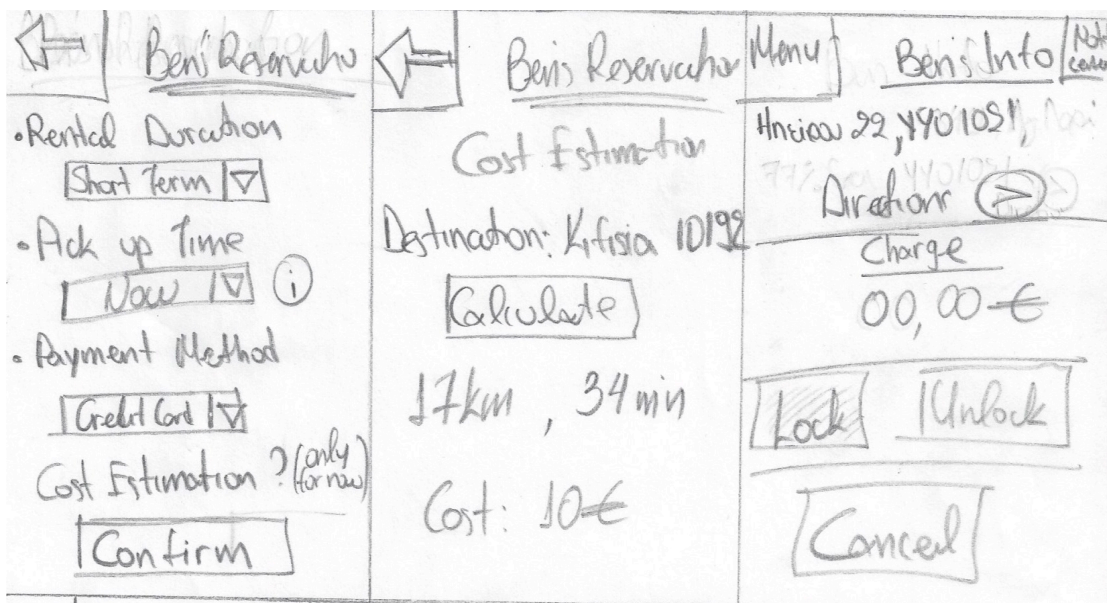 Ben's Reservatio
• Rental Duration
Short Term
• Pick up Time
Now i
• Payment Method
Credit Card
Cost Estimation ? (only for now)
Confirm
Ben's Reservatio
Cost Estimation
Destination: Kifisia 10192
Calculate
17km, 34min
Cost: 10€
Menu
Ben's Info
22, YYO1021,
Directions
Charge
00,00€
Lock
Unlock
Cancel